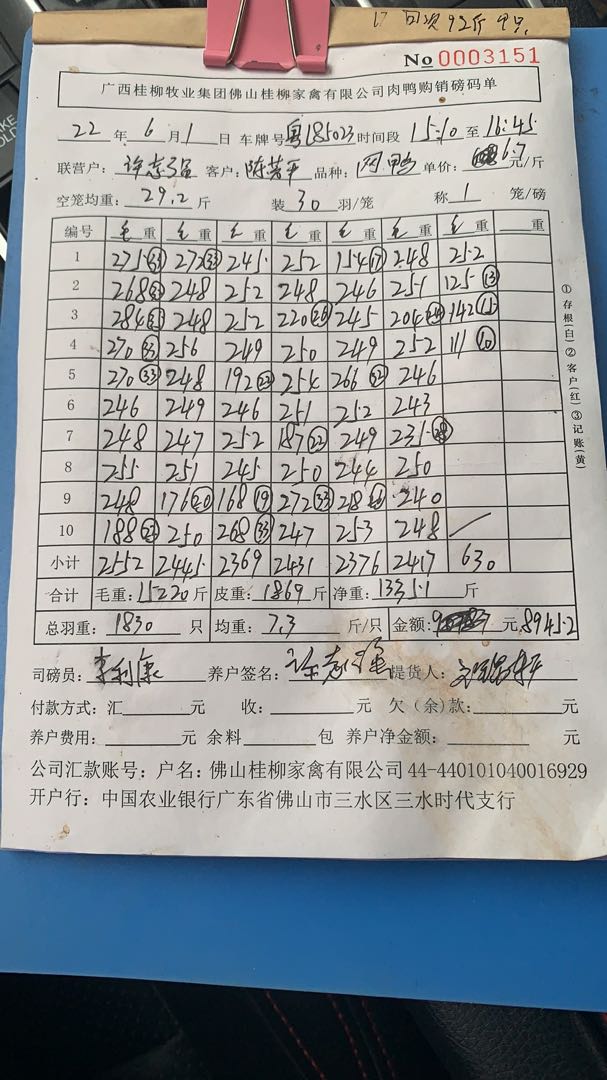 17 回次92斤 4只
No 0003151
广西桂柳牧业集团佛山桂柳家禽有限公司肉鸭购销磅码单
22 年 6 月 1 日 车牌号 粤185023 时间段 15:10 至 16:45
联营户: 客户: 陈芳平 品种: 肉鸭 单价: 6.7 元/斤
空笼均重: 29.2 斤 装 30 羽/笼 称 1 笼/磅
编号 毛重 毛重 毛重 毛重 毛重 毛重 毛重 重
1 275 (33) 272 (33) 245 252 154 (17) 248 252
2 268 248 252 248 246 251 125 (13)
3 284 248 252 220 (26) 245 204 142 (15)
4 270 (33) 256 249 250 249 252 111 (10)
5 270 (33) 248 192 254 266 (32) 246
6 246 249 246 251 252 243
7 248 247 252 187 (22) 249 231 (28)
8 255 251 245 250 244 250
9 248 176 (20) 168 (19) 272 (33) 28 240
10 188 250 268 (33) 247 253 248
小计 2552 2445 2369 2431 2376 2417 630
合计 毛重: 15220 斤 皮重: 1869 斤 净重: 13351 斤
总羽重: 1830 只 均重: 7.3 斤/只 金额: 元 8945.2
司磅员: 李利康 养户签名: 提货人:
付款方式: 汇 元 收: 元 欠(余)款: 元
养户费用: 元 余料 包 养户净金额: 元
公司汇款账号: 户名: 佛山桂柳家禽有限公司 44-440101040016929
开户行: 中国农业银行广东省佛山市三水区三水时代支行
①存根(白)②客户(红)③记账(黄)